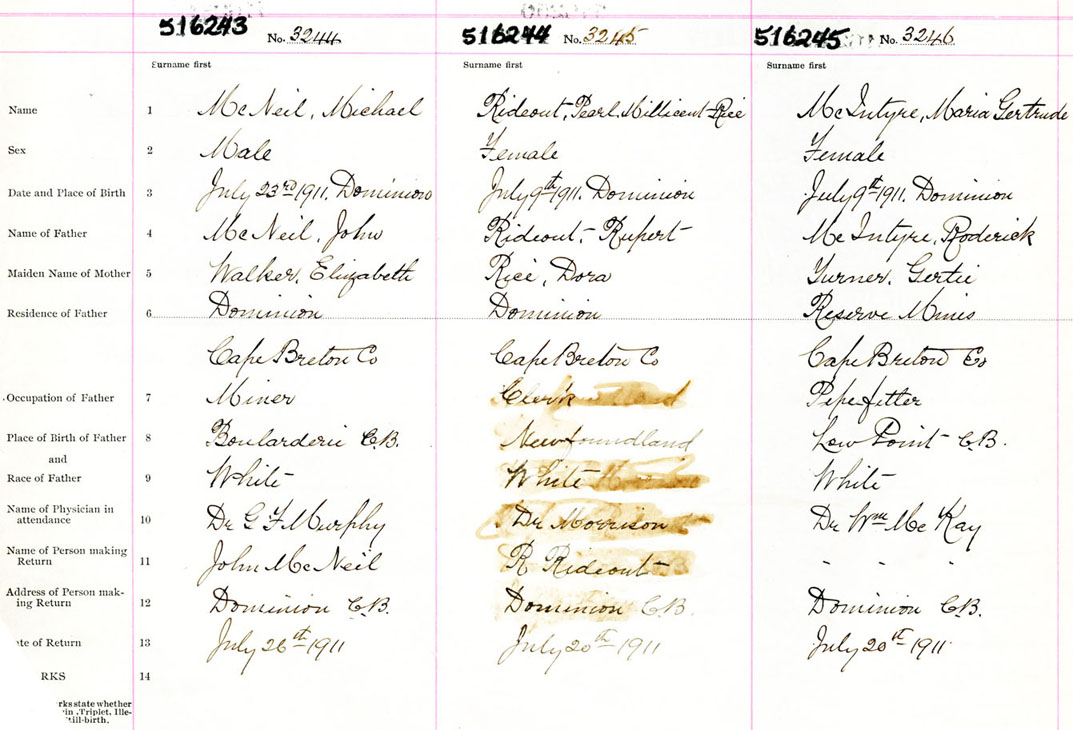 516243 No. 3244 516244 No. 3245 516245 No. 3246
Surname first Surname first Surname first
Name 1 McNeil, Michael Rideout, Pearl Millicent Rice McIntyre, Maria Gertrude
Sex 2 Male Female Female
Date and Place of Birth 3 July 23rd 1911, Dominion July 9th 1911. Dominion July 9th 1911, Dominion
Name of Father 4 McNeil, John Rideout, Rupert McIntyre, Roderick
Maiden Name of Mother 5 Walker, Elizabeth Rice, Dora Turner, Gertie
Residence of Father 6 Dominion Dominion Reserve Mines
Cape Breton Co Cape Breton Co Cape Breton Co
Occupation of Father 7 Miner Clerk Pipefitter
Place of Birth of Father 8 Boularderie C.B. Newfoundland Low Point C.B.
and
Race of Father 9 White White White
Name of Physician in
attendance 10 Dr Murphy Dr Morrison Dr Wm McKay
Name of Person making
Return 11 John McNeil R Rideout " " "
Address of Person mak-
ing Return 12 Dominion C.B. Dominion C.B. Dominion C.B.
te of Return 13 July 26th 1911 July 20th 1911 July 20th 1911
RKS 14
rks state whether
in, Triplet, Ille-
till-birth.